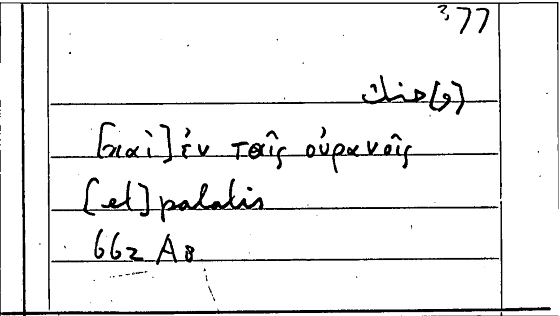 377
(و)حنك
[καὶ] ἐν ταῖς οὐρανοῖς
[et] palatis
662 A8